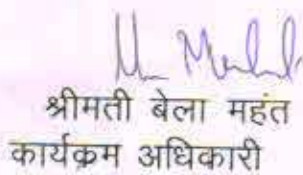 श्रीमती बेला महंत
कार्यक्रम अधिकारी